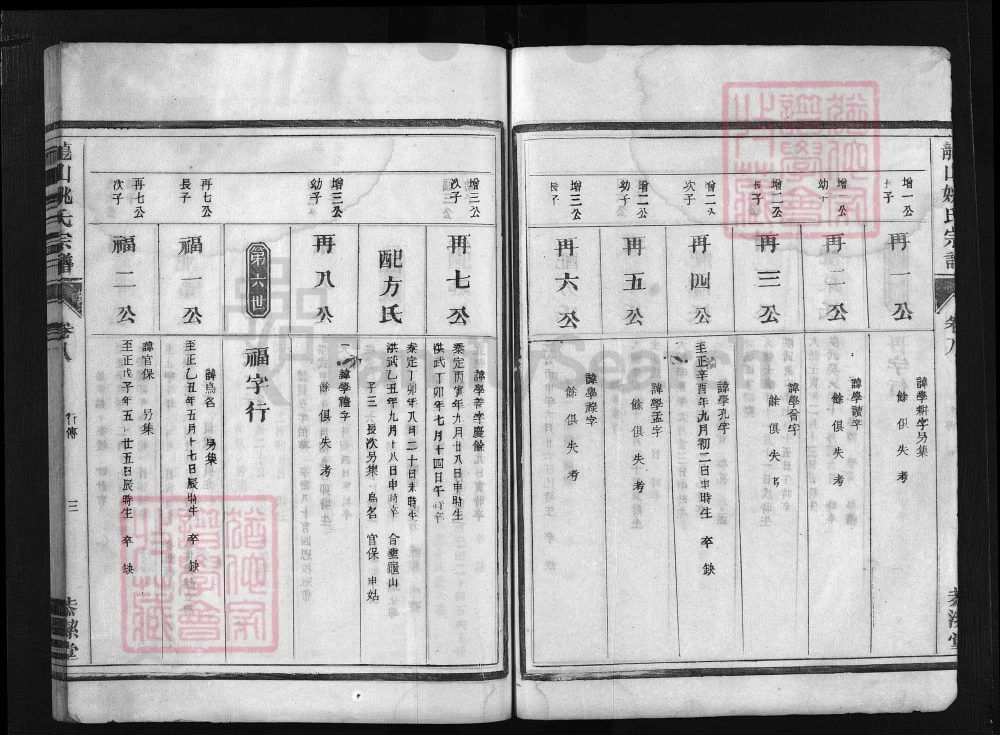 龍山姚氏宗譜
卷八
增一公
子
再一公
諱學耕字另集
餘俱失考
增二公
幼子
再二公
諱學讀字
餘俱失考
增二公
長子
再三公
諱學會字
餘俱失考
增二公
次子
再四公
諱學孔字
至正辛酉年九月初二日申時生 卒缺
增二公
幼子
再五公
諱學孟字
餘俱失考
增三公
長子
再六公
諱學禄字
餘俱失考
增三公
次子
再七公
諱學書字慶餘
泰定丙寅年九月廿八日申時生
洪武丁卯年七月十四日午時卒
配方氏
泰定丁卯年八月二十日未時生
洪武乙丑年九月十八日申時卒 合塟龜山
子三 長次另集 烏名 官保 申姑
增三公
幼子
再八公
諱學禮字
餘俱失考
第六世
福字行
再七公
長子
福一公
諱烏名 另集
至正乙丑年五月十七日辰時生 卒缺
再七公
次子
福二公
諱官保 另集
至正戊子年五 廿五日辰時生 卒缺
龍山姚氏宗譜
卷八
行傳
三